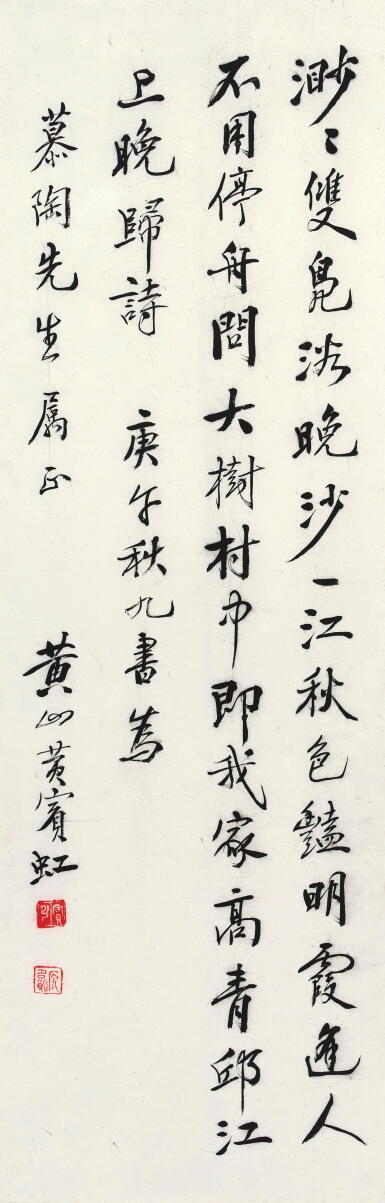 渺〻雙鳧落晚沙一江秋色豔明霞逢人
不用停舟問大樹村中即我家高青邱江
上晚歸詩 庚午秋九書為
慕陶先生屬正 黃山黃賓虹